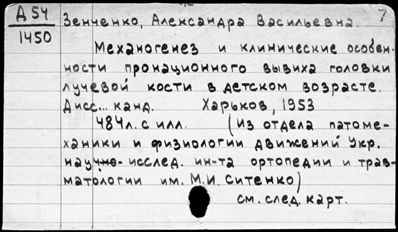 Д 54
1450
7
Зенченко, Александра Васильевна.
Механогенез и клинические особен-
ности пронационного вывиха головки
лучевой кости в детском возрасте.
Дисс... канд. Харьков, 1953
484л. с илл. (Из отдела патоме-
ханики и физиологии движений Укр.
научно-исслед. ин-та ортопедии и трав-
матологии им. М.И. Ситенко)
см. след. карт.